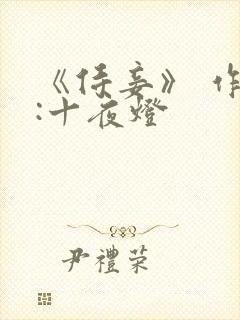 《侍妾》 作
:十夜燈
尹禮荣